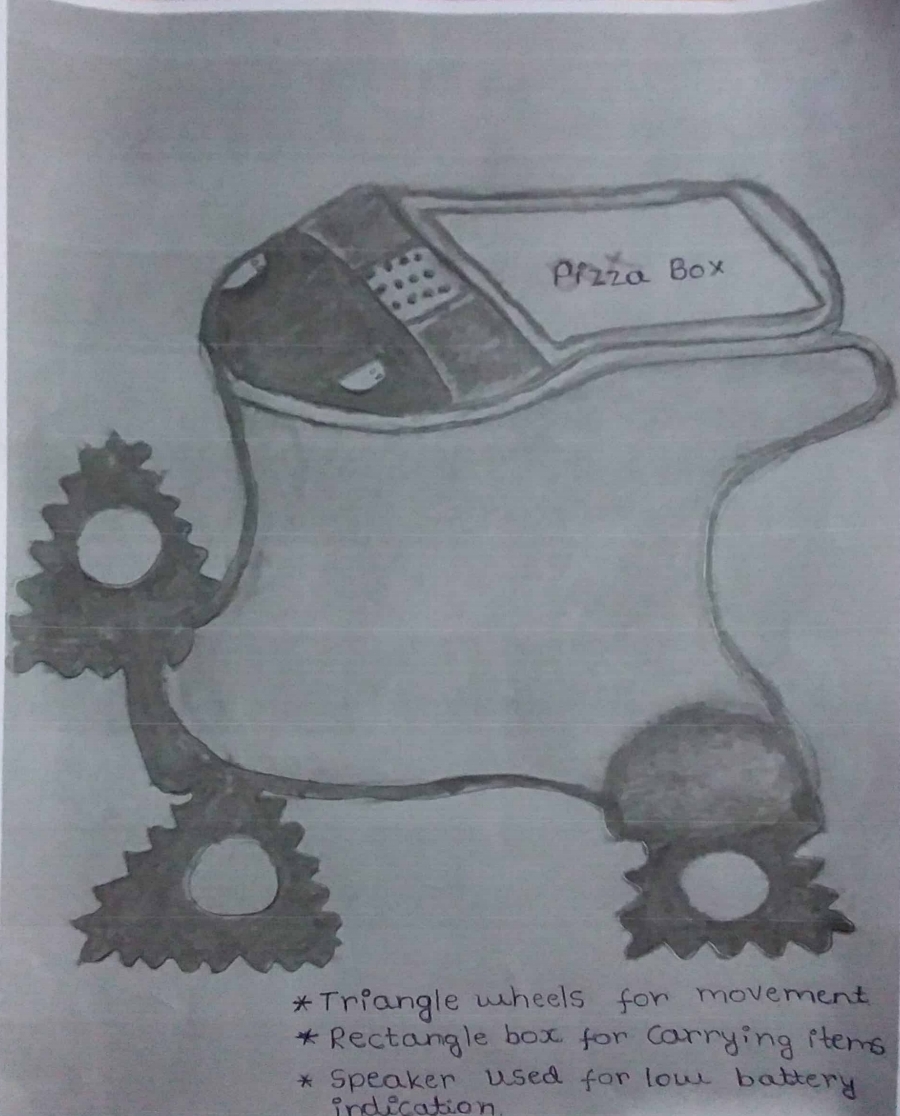 Pizza Box
* Triangle wheels for movement
* Rectangle box for carrying items
* Speaker used for low battery
indication.